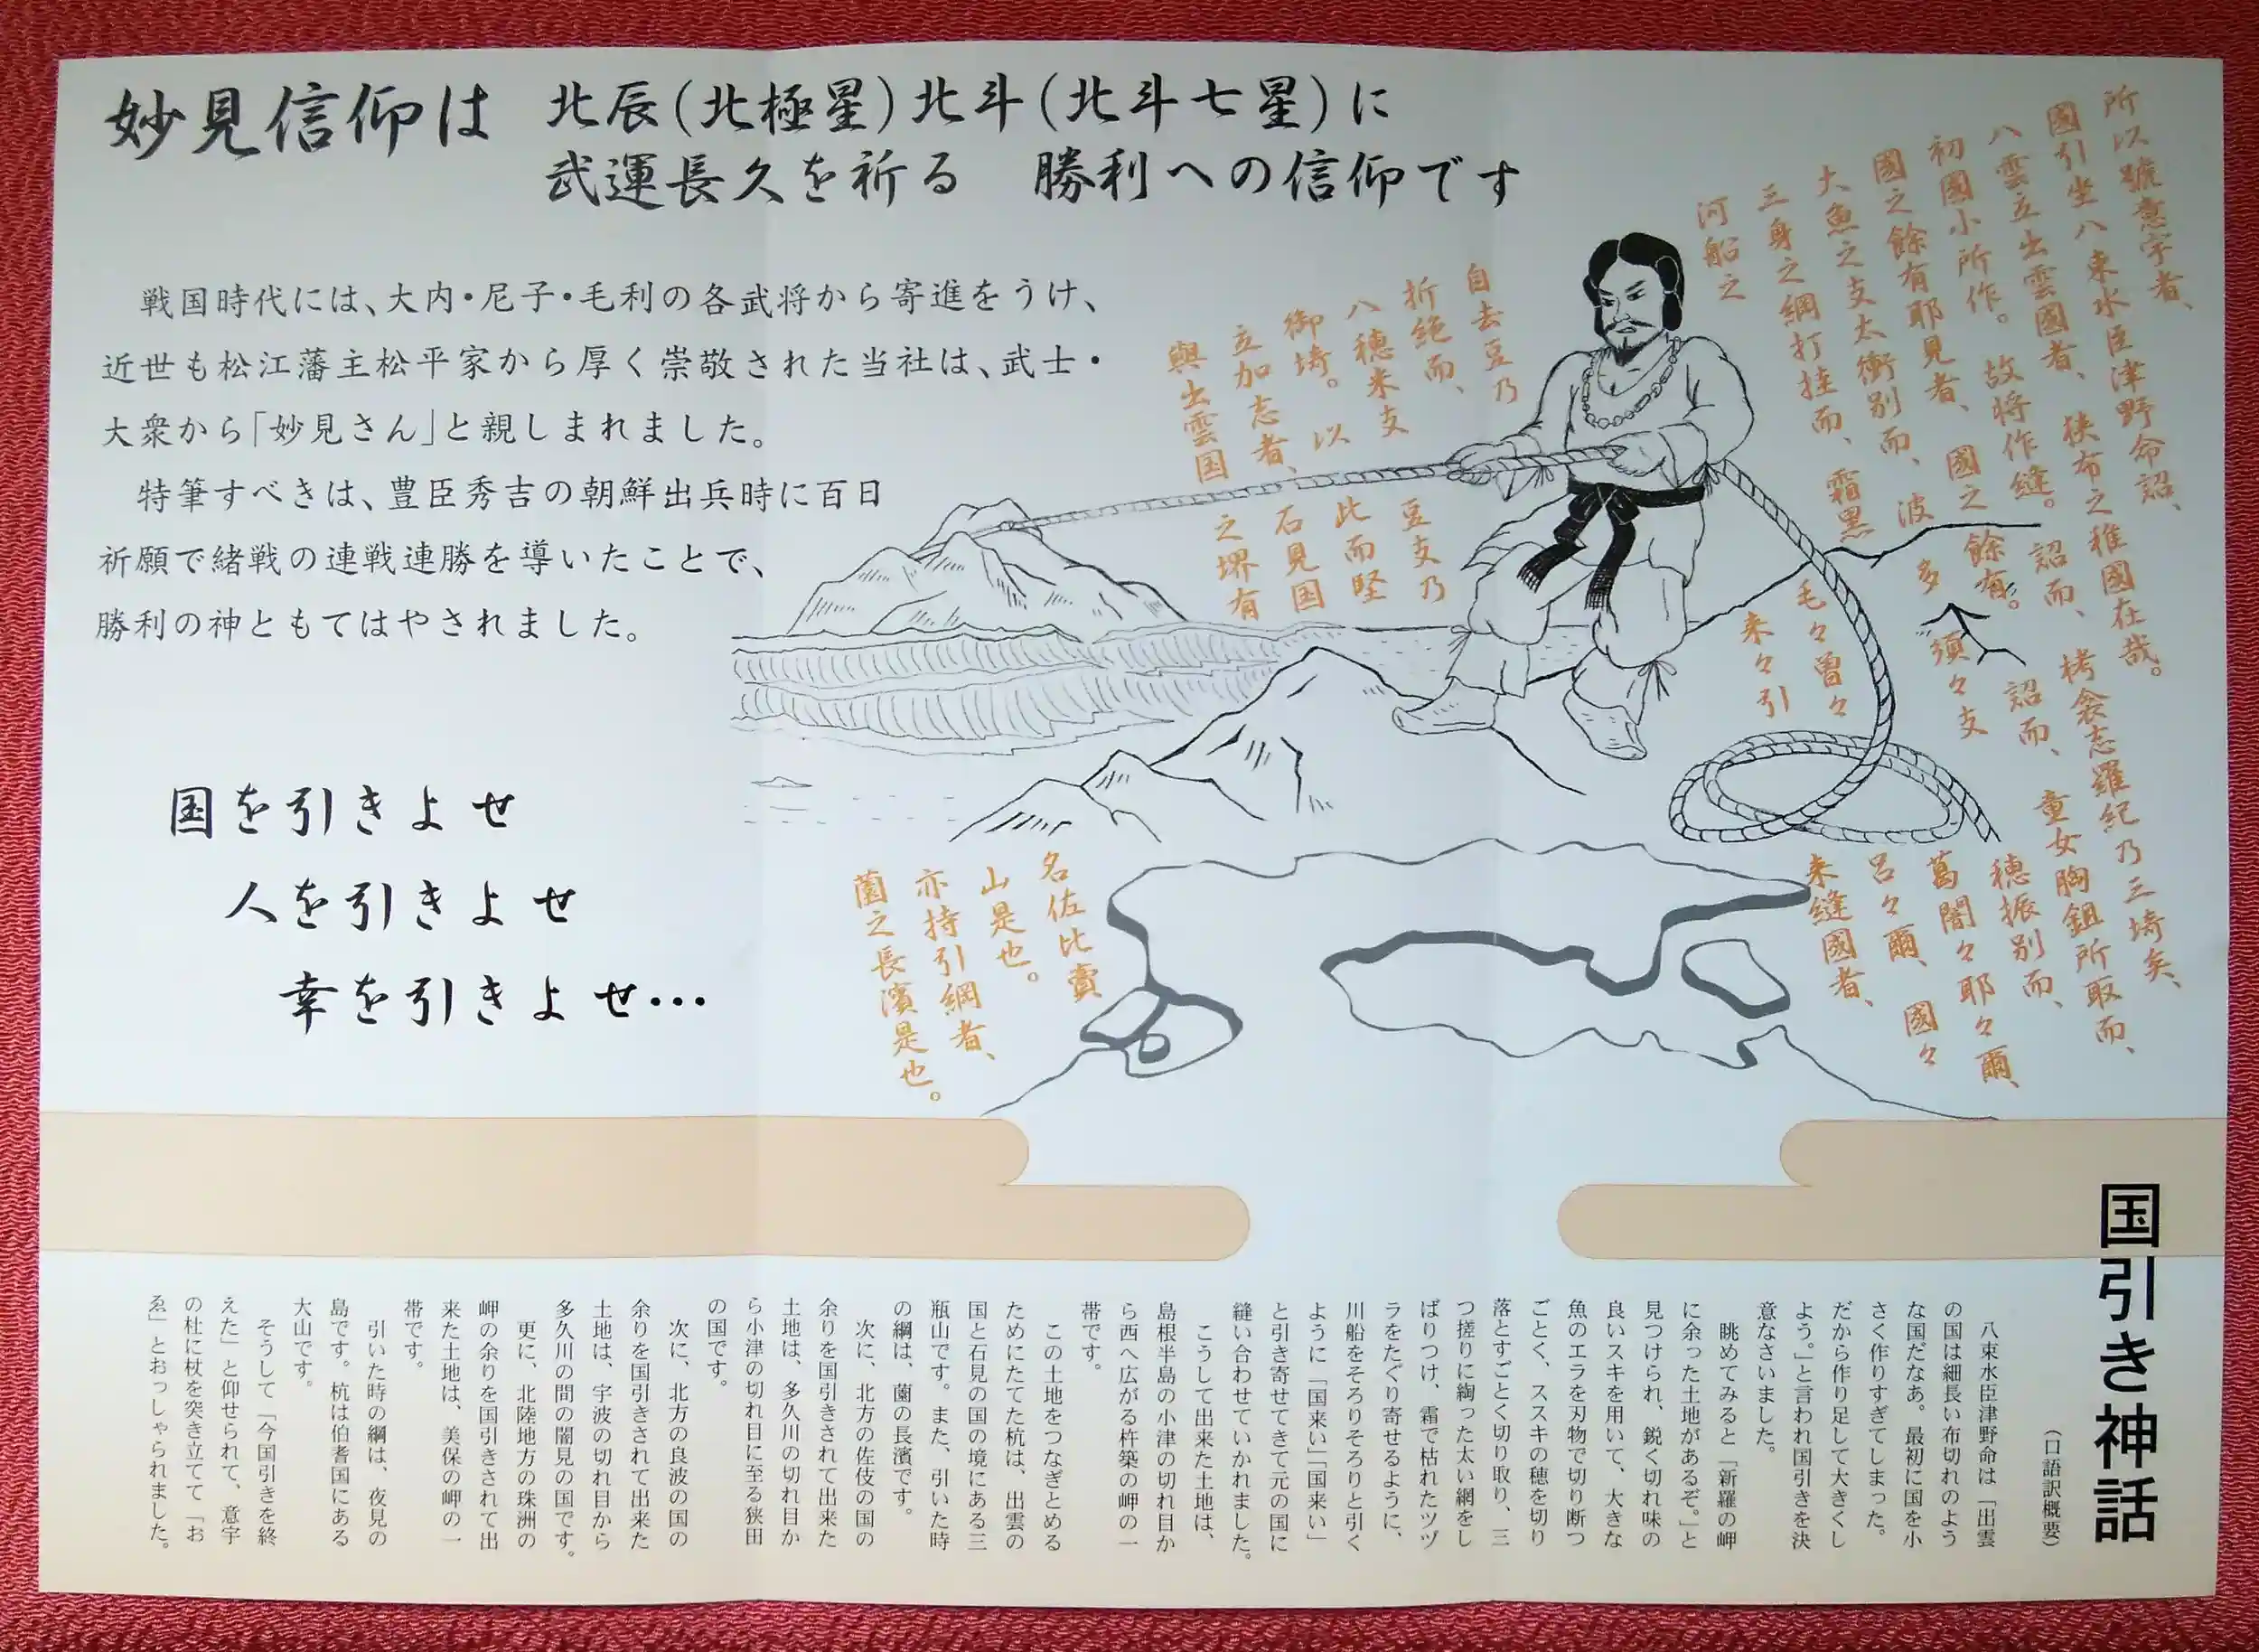 妙見信仰は
北辰(北極星)北斗(北斗七星)に
武運長久を祈る　勝利への信仰です
戦国時代には、大内・尼子・毛利の各武将から寄進をうけ、
近世も松江藩主松平家から厚く崇敬された当社は、武士・
大衆から「妙見さん」と親しまれました。
特筆すべきは、豊臣秀吉の朝鮮出兵時に百日
祈願で緒戦の連戦連勝を導いたことで、
勝利の神ともてはやされました。
国を引きよせ
人を引きよせ
幸を引きよせ…
所以號意宇者、
國引坐八束水臣津野命詔、
八雲立出雲國者、狭布之稚國在哉。
初國小所作。故将作縫。詔而、栲衾志羅紀乃三埼矣、
國之餘有耶見者、國之餘有。詔而、童女胸鉏所取而、
大魚之支太衝別而、波多須々支穂振別而、
三身之綱打挂而、霜黒葛闇々耶々爾、
河船之毛々曽々呂々爾、國々
来々引来縫國者、
自去豆乃
折絶而、
八穂米支豆支乃
御埼。以此而堅
立加志者、石見国
與出雲国之堺有
名佐比賣
山是也。
亦持引綱者、
薗之長濱是也。
国引き神話
(口語訳概要)
八束水臣津野命は「出雲
の国は細長い布切れのよう
な国だなあ。最初に国を小
さく作りすぎてしまった。
だから作り足して大きくし
よう。」と言われ国引きを決
意なさいました。
眺めてみると「新羅の岬
に余った土地があるぞ。」と
見つけられ、鋭く切れ味の
良いスキを用いて、大きな
魚のエラを刃物で切り断つ
ごとく、ススキの穂を切り
落とすごとく切り取り、三
つ搓りに綯った太い網をし
ばりつけ、霜で枯れたツヅ
ラをたぐり寄せるように、
川船をそろりそろりと引く
ように「国来い」「国来い」
と引き寄せてきて元の国に
縫い合わせていかれました。
こうして出来た土地は、
島根半島の小津の切れ目か
ら西へ広がる杵築の岬の一
帯です。
この土地をつなぎとめる
ためにたてた杭は、出雲の
国と石見の国の境にある三
瓶山です。また、引いた時
の綱は、薗の長濱です。
次に、北方の佐伎の国の
余りを国引きされて出来た
土地は、多久川の切れ目か
ら小津の切れ目に至る狭田
の国です。
次に、北方の良波の国の
余りを国引きされて出来た
土地は、宇波の切れ目から
多久川の間の闇見の国です。
更に、北陸地方の珠洲の
岬の余りを国引きされて出
来た土地は、美保の岬の一
帯です。
引いた時の綱は、夜見の
島です。杭は伯耆国にある
大山です。
そうして「今国引きを終
えた」と仰せられて、意宇
の杜に杖を突き立てて「お
ゑ」とおっしゃられました。